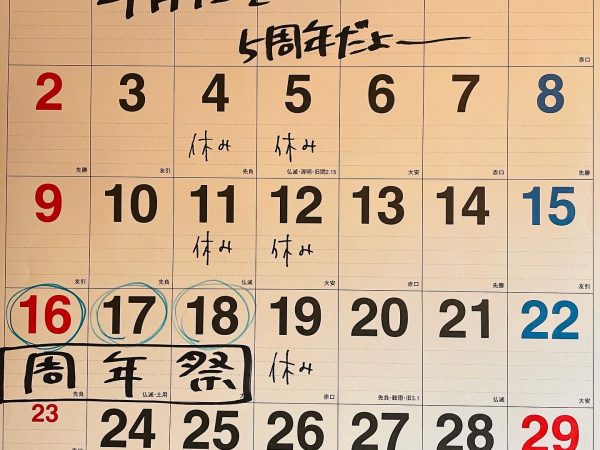 5周年だよー
赤口
2 3 4 5 6 7 8
休み 休み
先勝 友引 先負 仏滅・清明・旧閏2.15 大安 赤口 先勝
9 10 11 12 13 14 15
休み 休み
友引 先負 仏滅 大安 赤口 先勝 友引
16 17 18 19 20 21 22
周年祭 休み
先負 仏滅・土用 大 赤口 先負・穀雨・旧3.1 仏滅 大安
23 24 25 26 27 28 29